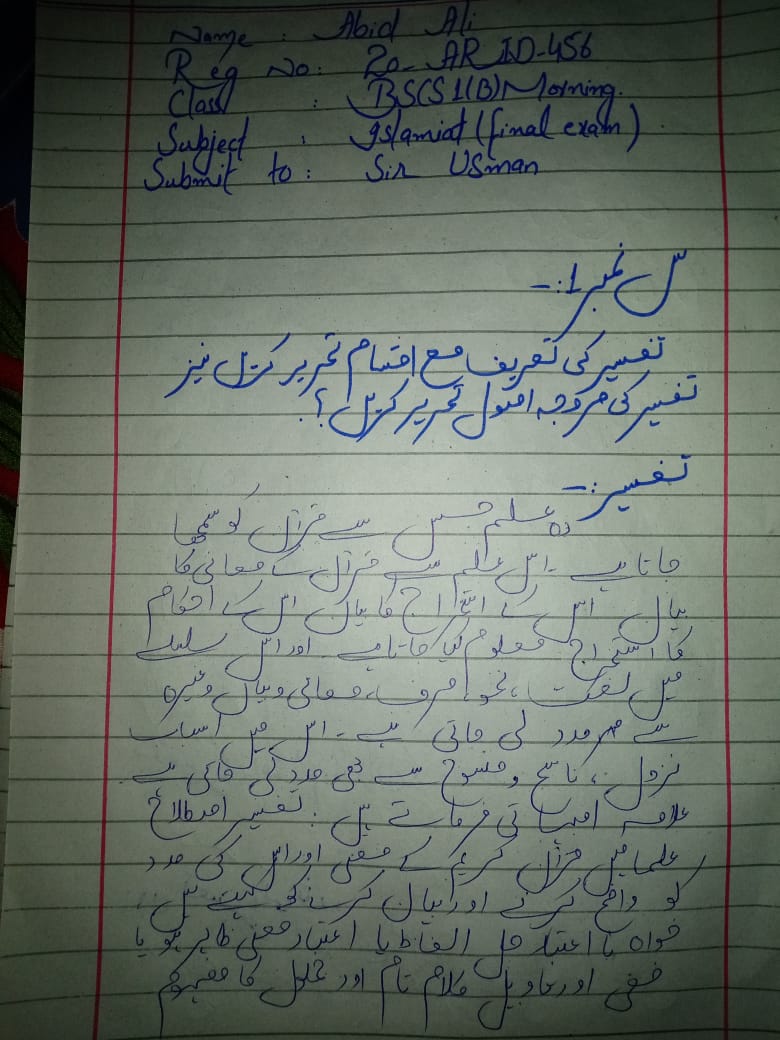 Name : Abid Ali
Reg No: 20-ARID-456
Class : BSCS 1(B) Morning.
Subject : Islamiat (final exam)
Submit to: Sir Usman
س نمبر 1:-
تفسیر کی تعریف مع اقسام تحریر کریں نیز
تفسیر کی مروجہ اصول تحریر کریں؟
تفسیر:-
وہ علم جس سے قرآن کو سمجھا
جاتا ہے۔ اس علم سے قرآن کے معانی کا
بیان اس کے کا بیان اس کے احکام
کا استخراج معلوم کیا جاتا ہے۔ اور اس سلسلے
میں لغت، نحو، صرف، معانی و بیان وغیرہ
سے مدد لی جاتی ہے۔ اس میں اسباب
نزول، ناسخ و منسوخ سے بھی مدد لی جاتی ہے
علامہ فرماتے ہیں: تفسیر اصطلاح
علما میں قرآن کریم کے معنی اور اس کی مدد
کو واضح کرنے اور بیان کرنے کو کہتے ہیں،
خواہ با اعتبار حل الفاظ یا اعتبار معنی ظاہر ہو یا
خفی اور کلام تام اور کا مفہوم